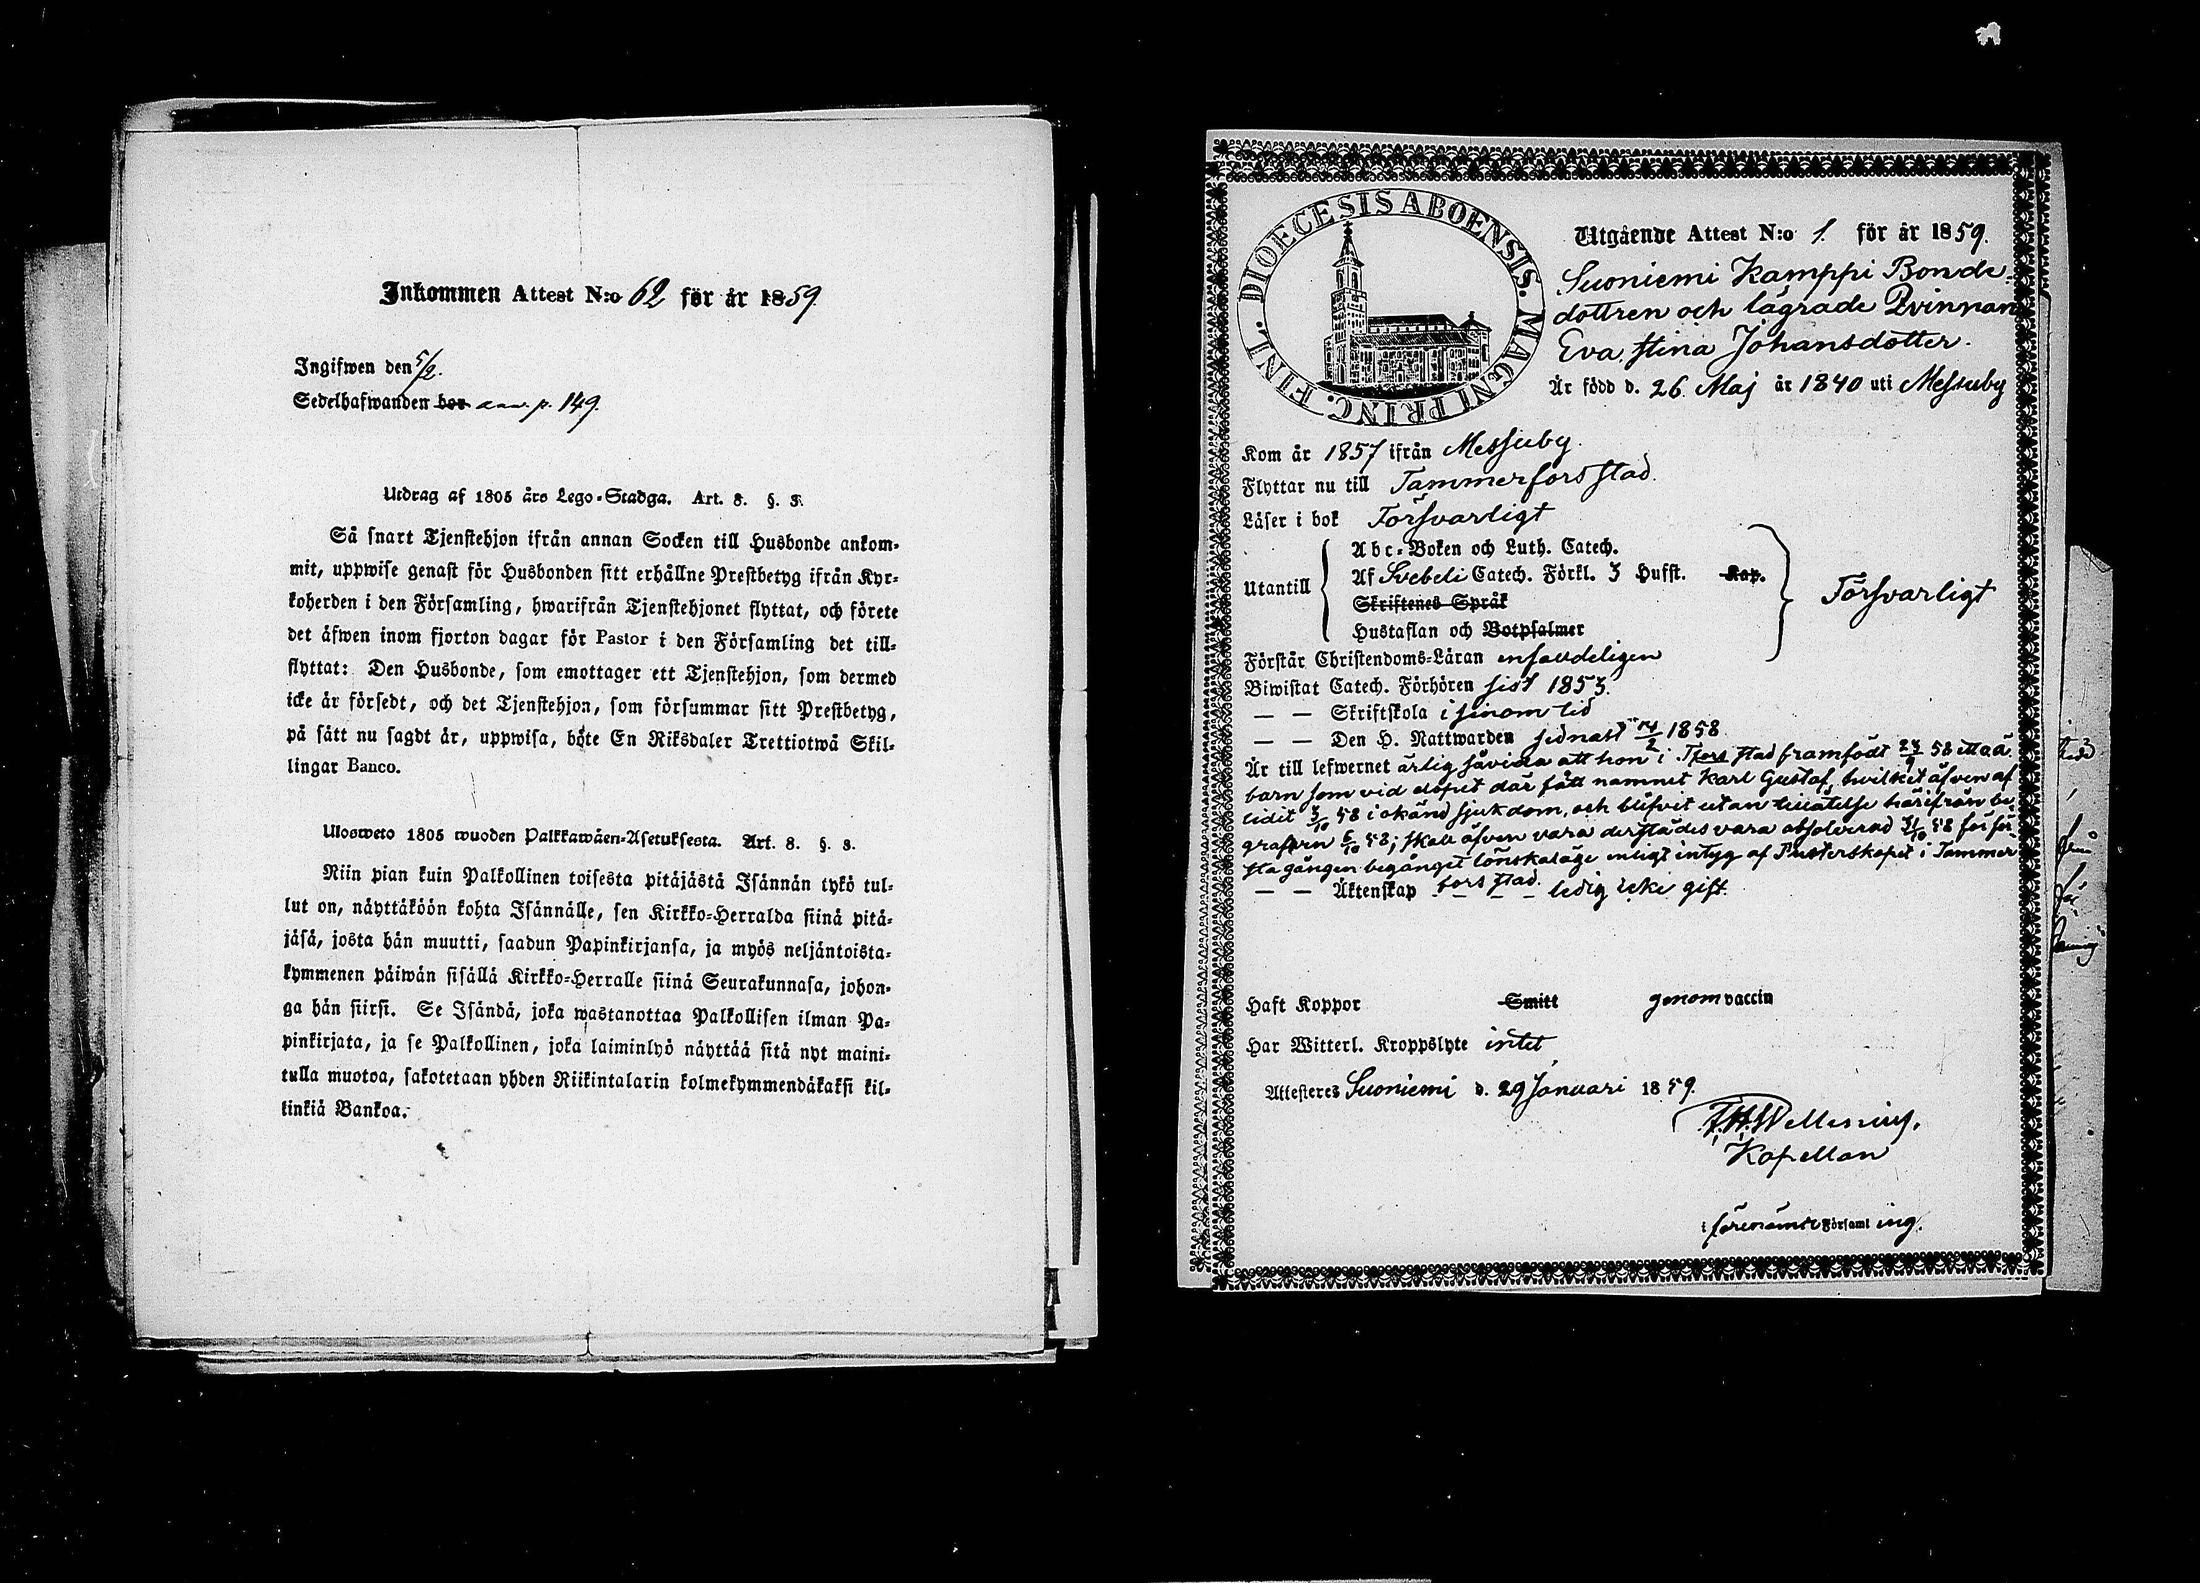 Inkommen Attest N:o 62 för år 1859.
Ingifwen den 5/2.
Sedelhafwanden bor p. 149.
Utdrag af 1805 års Lego-Stadga. Art. 8. §. 3.
Så snart Tjenstehjon ifrån annan Socken till Husbonde ankom-
mit, uppwise genast för Husbonden sitt erhållne Prestbetyg ifrån Kyr-
koherden i den Församling, hwarifrån Tjenstehjonet flyttat, och förete
det äfwen inom fjorton dagar för Pastor i den Församling det till-
flyttat: Den Husbonde, som emottager ett Tjenstehjon, som dermed
icke är försedt, och det Tjenstehjon, som försummar sitt Prestbetyg,
på sätt nu sagdt är, uppwisa, böte En Riksdaler Trettiotwå Skil-
lingar Banco.
Ulosweto 1805 wuoden Palkkawäen-Asetuksesta. Art. 8. §. 3.
Niin pian kuin Palkollinen toisesta pitäjästä Isännän tykö tul-
lut on, näyttäköön kohta Isännälle, sen Kirkko-Herralda siinä pitä-
jäsä, josta hän muutti, saadun Papinkirjansa, ja myös neljäntoista-
kymmenen päiwän sisällä Kirkko-Herralle siinä Seurakunnasa, johon-
ga hän siirsi. Se Isändä, joka wastanottaa Palkollisen ilman Pa-
pinkirjata, ja se Palkollinen, joka laiminlyö näyttää sitä nyt maini-
tulla muotoa, sakotetaan yhden Riikintalarin kolmekymmendäkaksi kil-
linkiä Bankoa.
FINL. DIOECESIS ABOENSIS. MAGNI PRINC.
Utgående Attest N:o 1. för år 1859.
Suoniemi Kamppi Bonde-
dottren och lägrade Qvinnan
Eva Stina Johansdotter.
Är född d. 26 Maj år 1840 uti Messuby
Kom år 1857 ifrån Messuby.
Flyttar nu till Tammerfors stad.
Läser i bok Försvarligt
Utantill
Abc-Boken och Luth. Catech.
Af Svebeli Catech. Förkl. 3 Hufst. Kap.
Skriftenes Språk
Hustaflan och Botpsalmer
Försvarligt
Förstår Christendoms-Läran enfaldeligen
Biwistat Catech. Förhören sist 1853.
— — Skriftskola i sinom tid
— — Den H. Nattwarden sednast 14/2 1858
Är till lefwernet ärlig såvida att hon i Tfors stad framfödt 24/9 58 ett oä.
barn som vid dopet där fått namnet Karl Gustaf, hvilket äfven af
lidit 3/10 58 i okänd sjukdom, och blifvit utan tillåtelse härifrån be-
grafven 6/10 58; skall äfven vara derstädes vara absolverad /10 58 för för-
sta gången begånget lönskaläge enligt intyg af Presterskapet i Tammer-
— — Äktenskap fors stad. — — — ledig icke gift.
Haft Koppor Smitt genom vaccin
Har Witterl. Kroppslyte intet
Attesteres Suoniemi d. 29 Januari 1859.
Wellenius.
Kapellan
i förenämde Församling.